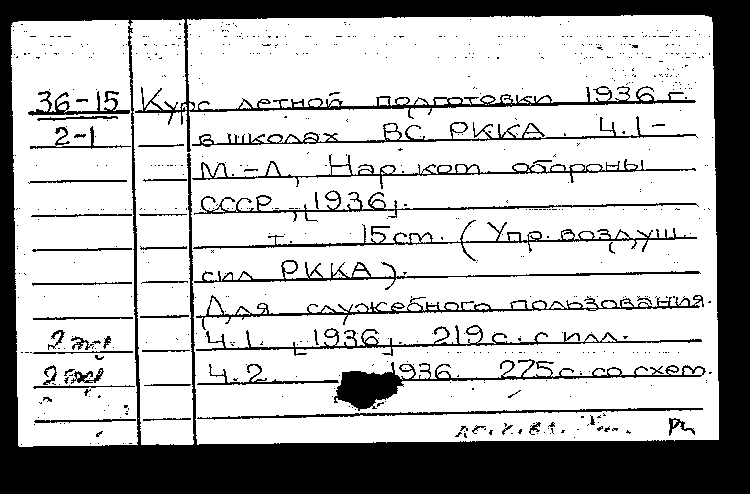 36-15 Курс летной подготовки 1936 г.
2-1 в школах ВС РККА. Ч.1-
М.-Л., Нар. ком. обороны
СССР, [1936].
т. 15 см. (Упр. воздуш.
сил РККА).
Для служебного пользования.
2 экз Ч.1. [1936]. 219 с. с илл.
2 экз Ч.2. 1936. 275 с. со схем.